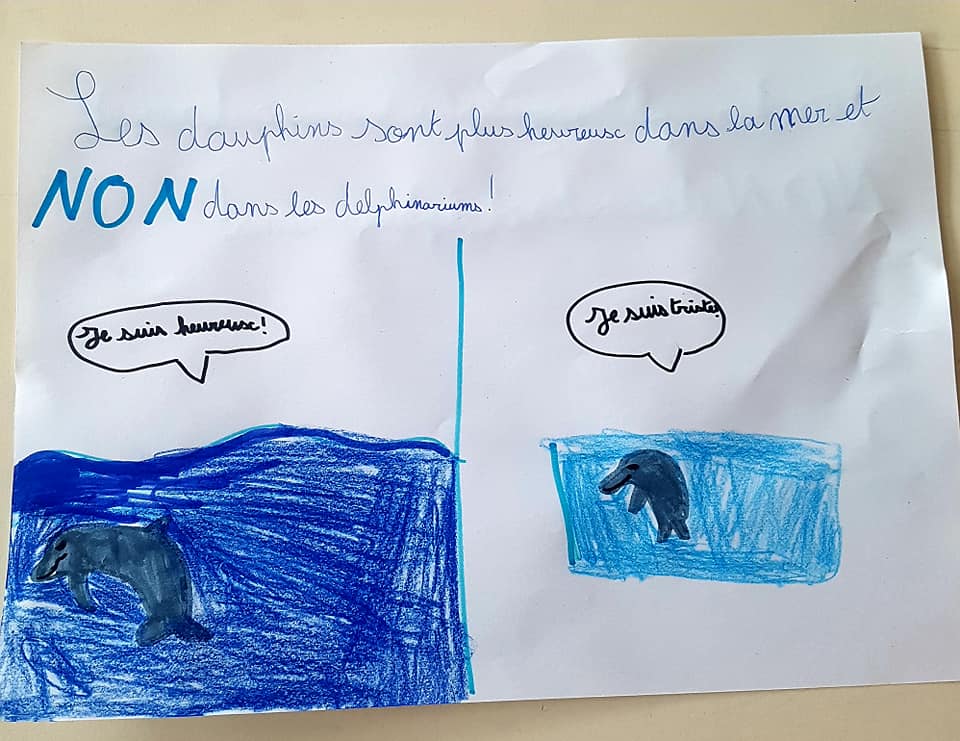 Les dauphins sont plus heureux dans la mer et
NON dans les delphinariums!
Je suis heureux!
Je suis triste!